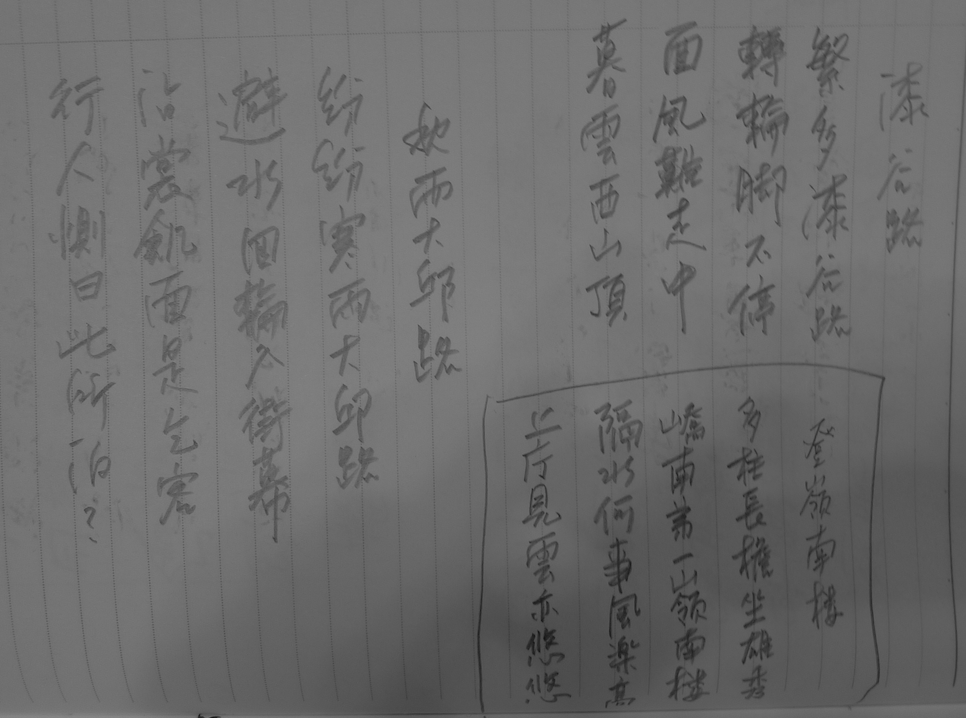 漆谷路
繁多漆谷路
轉輪脚不停
面風難走中
暮雲西山頂
登嶺南楼
多柱長檐坐雄秀
嶠南第一山領南楼
隔水何事風楽高
上庁見雲亦悠悠
秋雨大邱路
紛紛寒雨大邱路
避水回輪入街幕
沾裳飢面是乞客
行人惻曰此所泊?